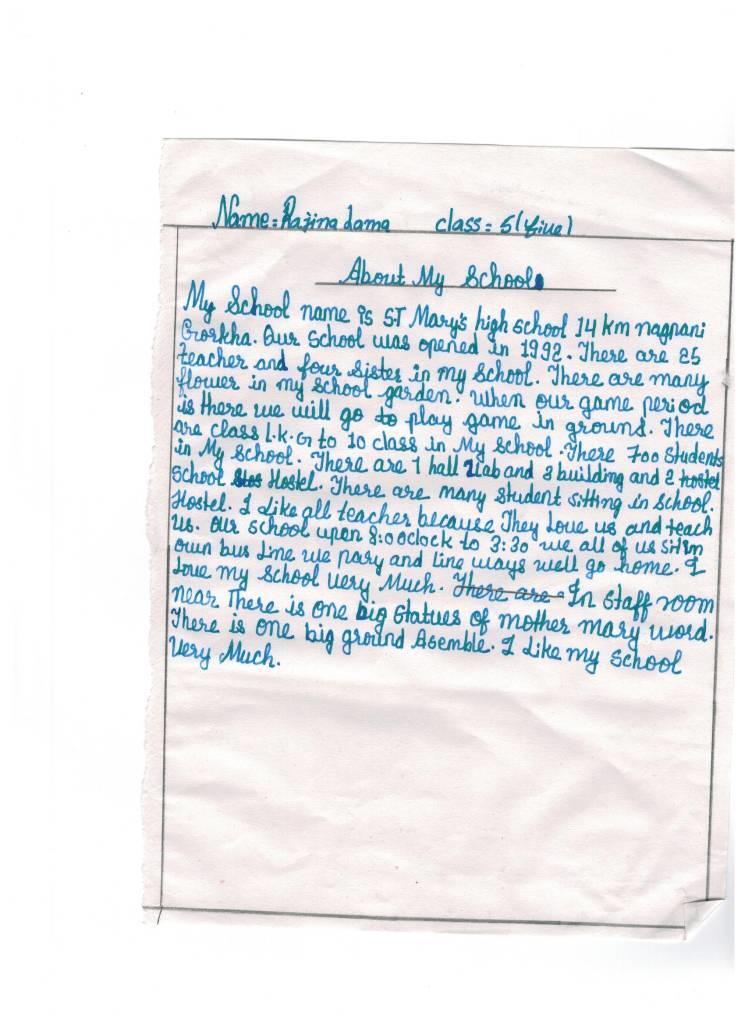 Name = Rajina Lama class = 5 (five)
About My School
My School name is S.T Mary's high school 14 km nagpani
Gorkha. Our school was opened in 1992. There are 25
teacher and four sister in my School. There are many
flower in my school garden. When our game period
is there we will go to play game in ground. There
are class L.K.G to 10 class in My School. There 700 Students
in My school. There are 1 hall 1 lab and 3 building and 2 hostel
school Hostel. There are many student sitting in school.
Hostel. I Like all teacher because They Love us and teach
us. Our school upen 8:0 oclock to 3:30 we all of us sit in
own bus Line we pary and line ways well go home. I
Love my School very Much. There are In staff room
near There is one big Statues of mother mary word.
There is one big ground Asemble. I Like my School
Very Much.